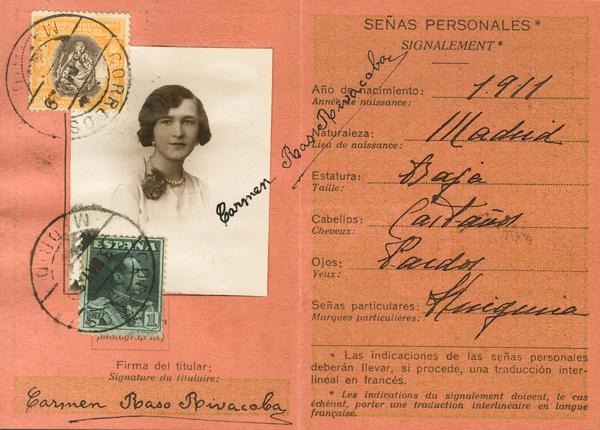 CORREOS
MADRID
Carmen Raso Rivacoba
ESPAÑA
1
MADRID
Firma del titular:
Signature du titulaire:
Carmen Raso Rivacoba
SEÑAS PERSONALES*
SIGNALEMENT*
Año de nacimiento: 1.911
Année de naissance:
Naturaleza: Madrid
Lieu de naissance:
Estatura: Baja
Taille:
Cabellos: Castaños
Cheveux:
Ojos: Pardos
Yeux:
Señas particulares: Ninguna
Marques particulières:
* Las indicaciones de las señas personales
deberán llevar, si procede, una traducción inter-
lineal en francés.
* Les indications du signalement doivent, le cas
échéant, porter une traduction interlinéaire en langue
française.